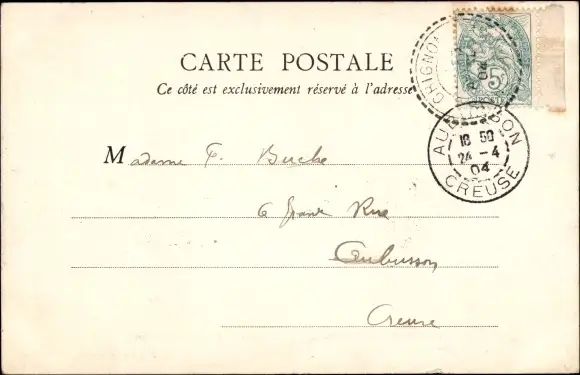 CARTE POSTALE
Ce côté est exclusivement réservé à l'adresse
CHIGNO
04
5c
AUBUSSON
18 50
24 - 4
04
CREUSE
Madame F. Buche
6 grande Rue
Aubusson
Creuse